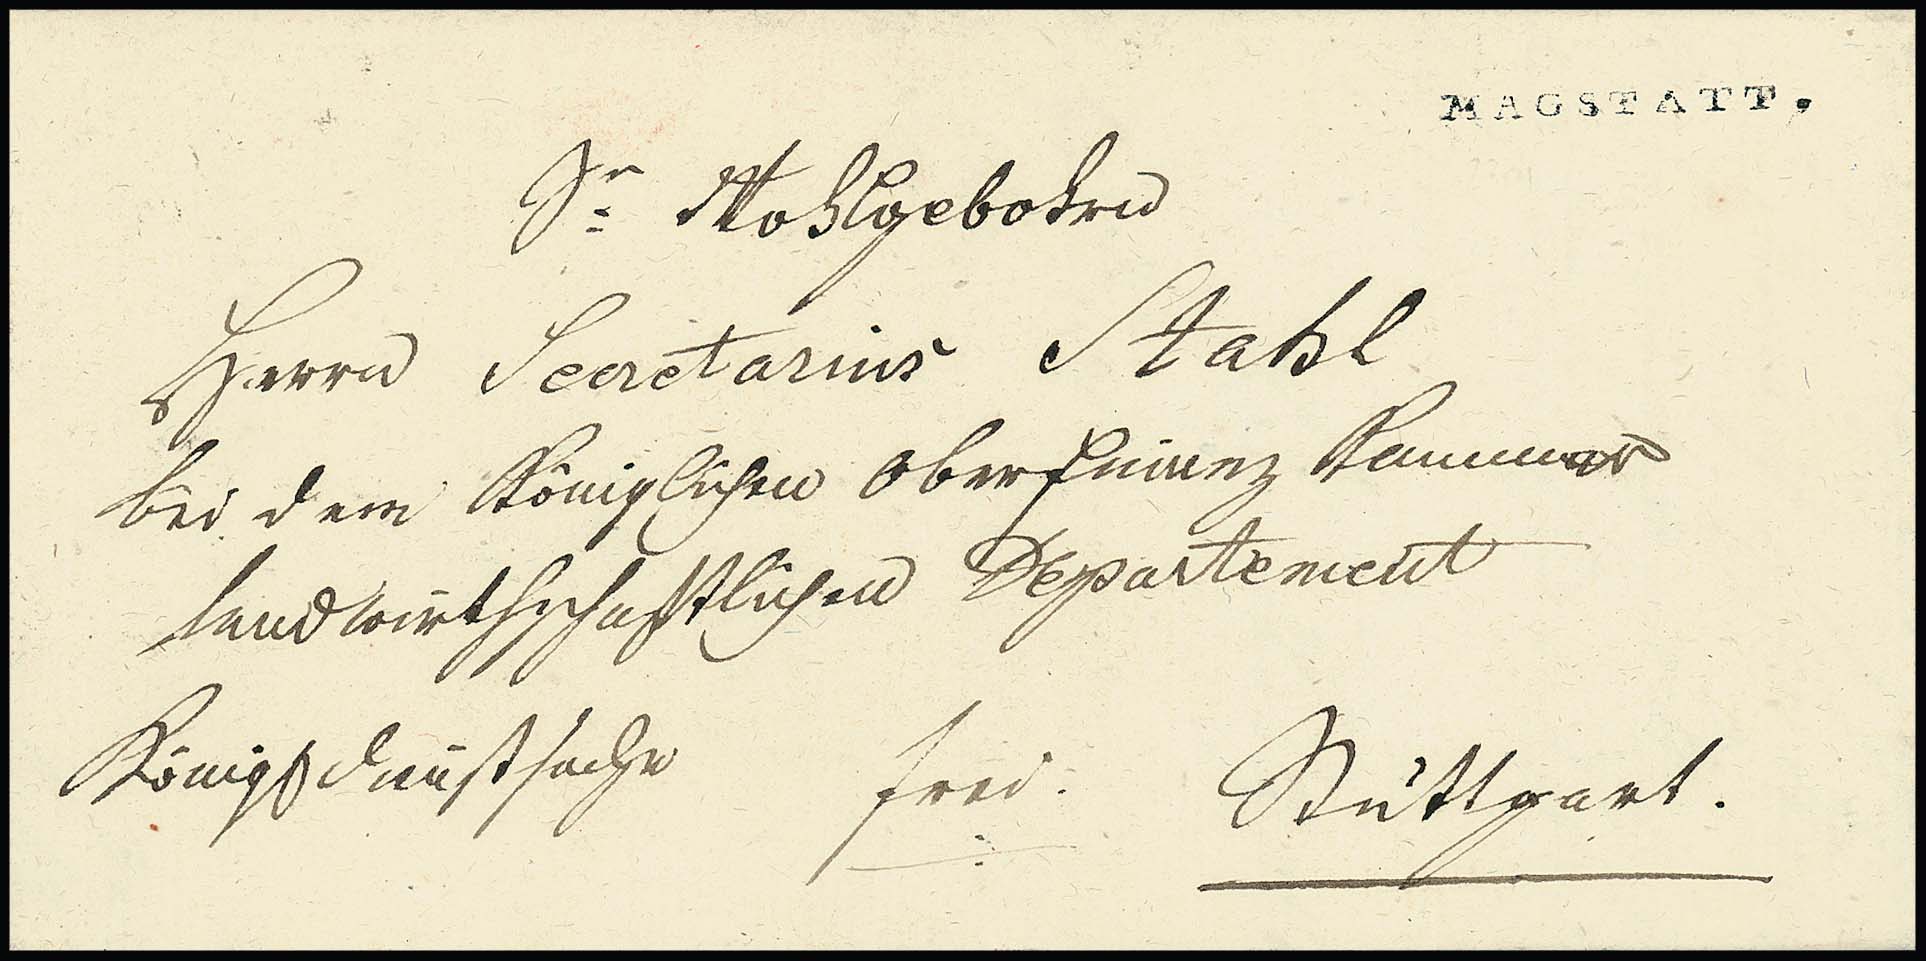 MAGSTATT.
Sr Wohlgebohrn
Herrn Secretarius Stahl
bei dem Königlichen Oberfinanz Kammer
landwirthschaftlichen Departement
Königs dienstsache frei. Stuttgart.